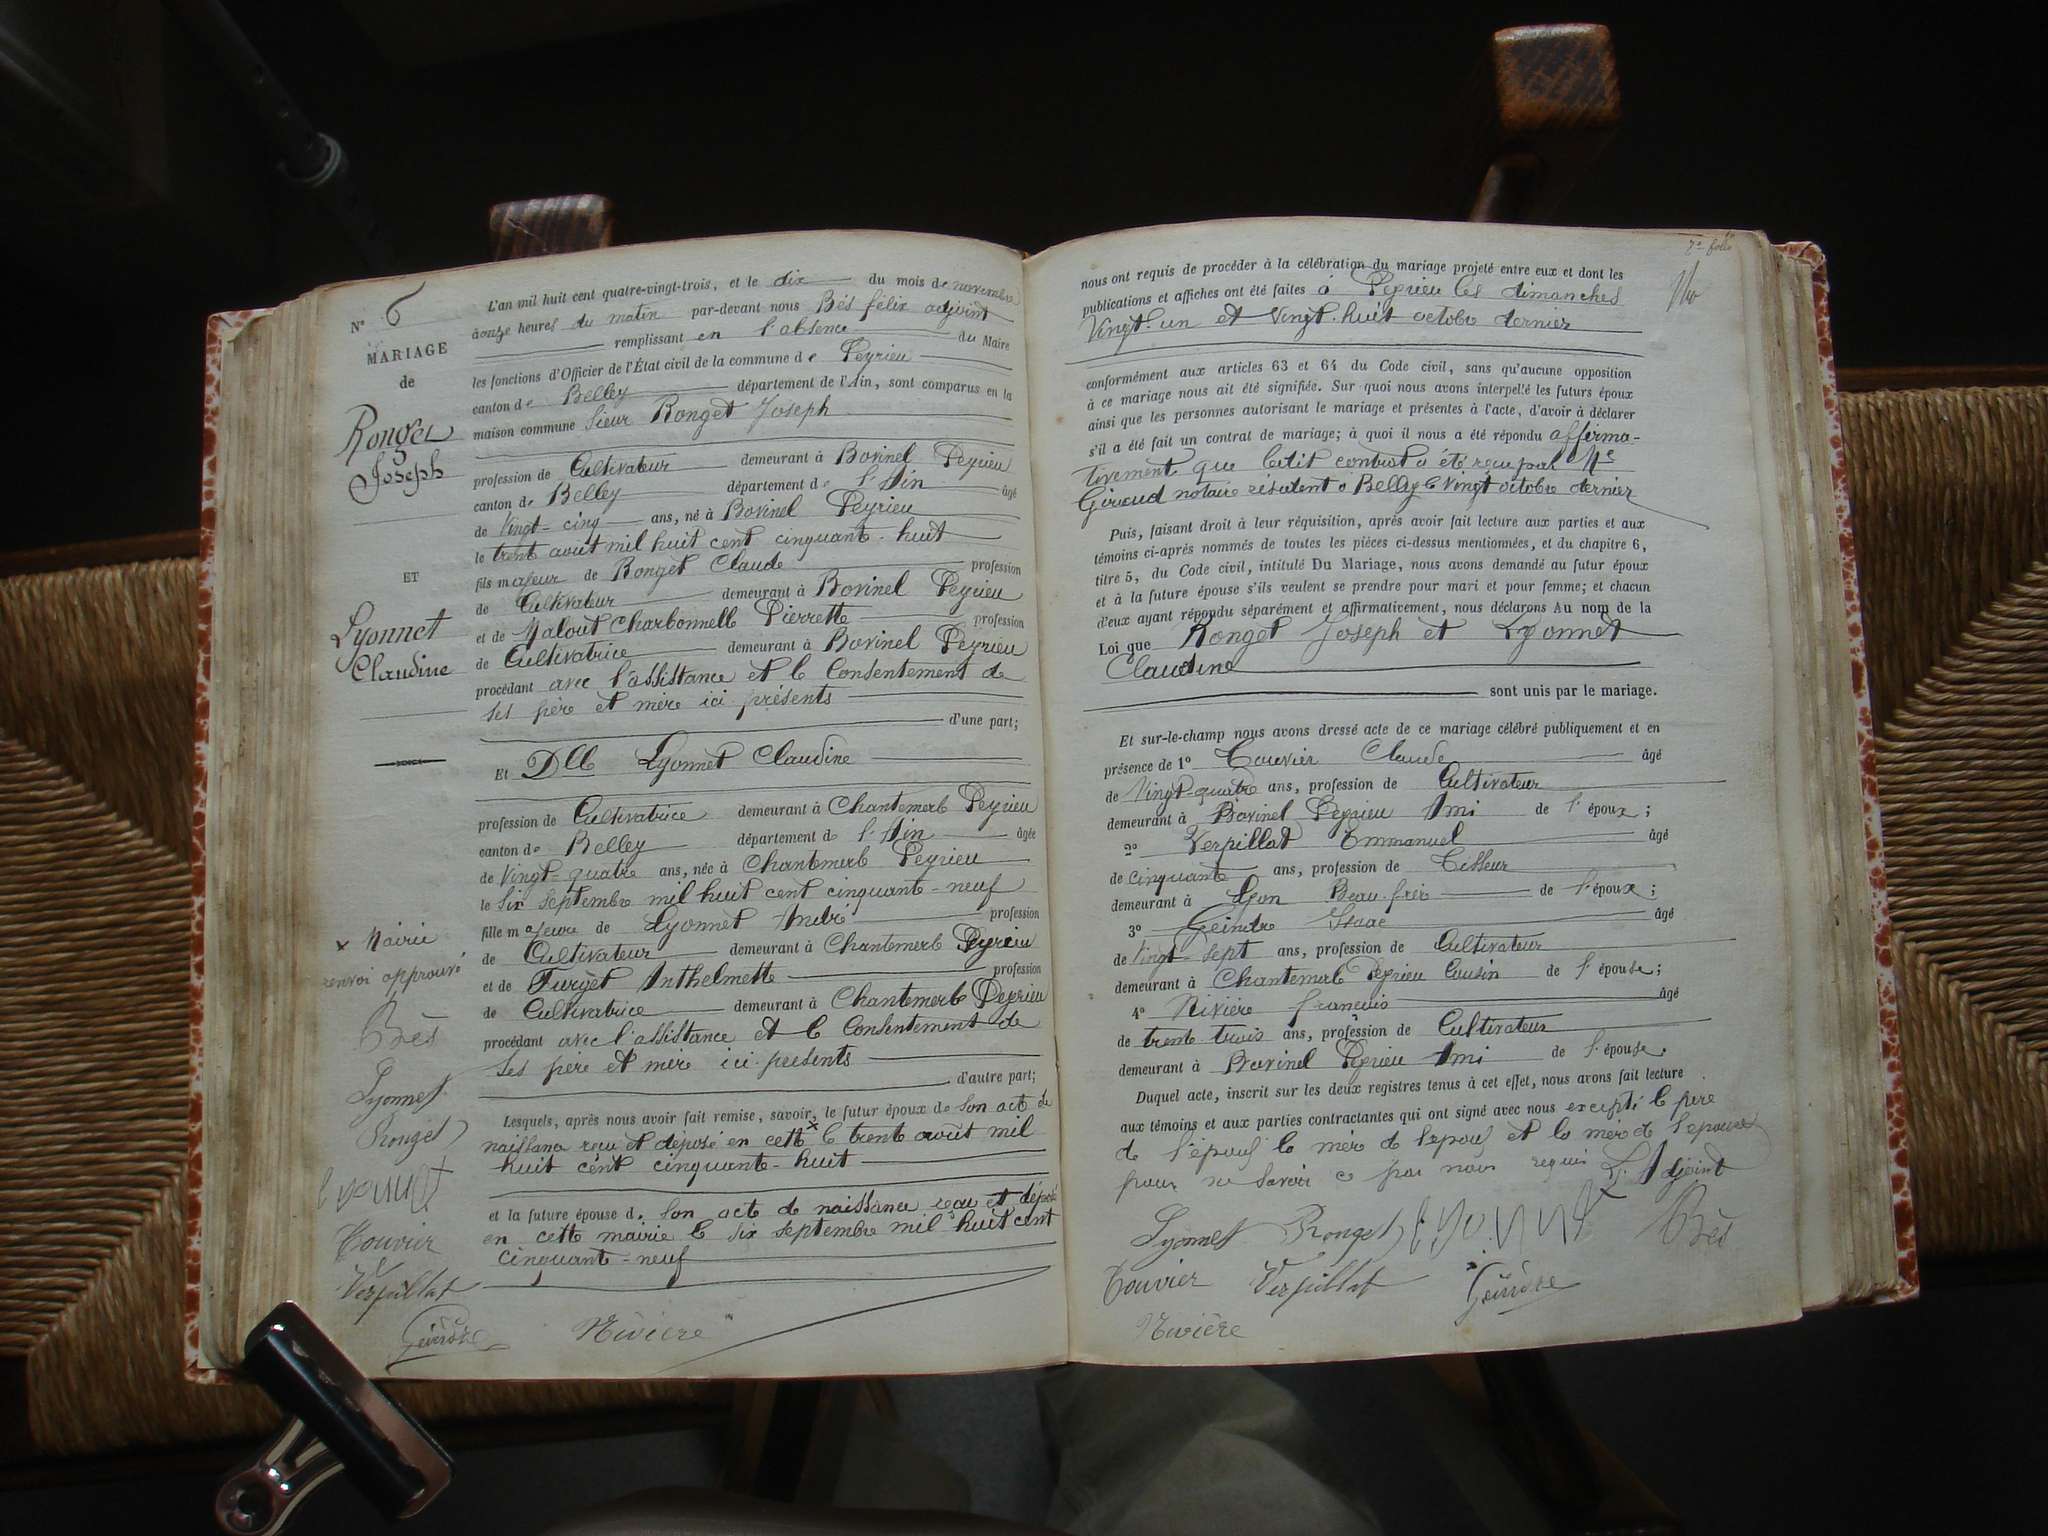 N° 6
MARIAGE
de
Ronget
Joseph
ET
Lyonnet
Claudine
x Mairie
renvoi approuvé
Bès
Lyonnet
Ronget
Lyonnet
Touvier
Verpillat
Geindre
Rivière
L'an mil huit cent quatre-vingt-trois, et le dix du mois de novembre
à onze heures du matin par-devant nous Bès félix adjoint
remplissant en l'absence du Maire
les fonctions d'Officier de l'État civil de la commune de Peyrieu
canton de Belley département de l'Ain, sont comparus en la
maison commune Sieur Ronget Joseph
profession de Cultivateur demeurant à Bovinel Peyrieu
canton de Belley département de l'Ain âgé
de Vingt-cinq ans, né à Bovinel Peyrieu
le trente août mil huit cent cinquante-huit
fils majeur de Ronget Claude profession
de Cultivateur demeurant à Bovinel Peyrieu
et de Charbonnelle Pierrette profession
de Cultivatrice demeurant à Bovinel Peyrieu
procédant avec l'assistance et le Consentement de
ses père et mère ici présents
d'une part;
Et Dlle Lyonnet Claudine
profession de Cultivatrice demeurant à Chantemerle Peyrieu
canton de Belley département de l'Ain âgée
de Vingt-quatre ans, née à Chantemerle Peyrieu
le six septembre mil huit cent cinquante-neuf
fille majeure de Lyonnet André profession
de Cultivateur demeurant à Chantemerle Peyrieu
et de Anthelmette profession
de Cultivatrice demeurant à Chantemerle Peyrieu
procédant avec l'assistance et le Consentement de
ses père et mère ici présents
d'autre part;
Lesquels, après nous avoir fait remise, savoir, le futur époux de son acte de
naissance reçu et déposé en cette x le trente août mil
huit cent cinquante-huit
et la future épouse de son acte de naissance reçu et déposé
en cette mairie le six septembre mil huit cent
cinquante-neuf
7e folio
nous ont requis de procéder à la célébration du mariage projeté entre eux et dont les
publications et affiches ont été faites à Peyrieu les dimanches
Vingt-un et Vingt-huit octobre dernier
conformément aux articles 63 et 64 du Code civil, sans qu'aucune opposition
à ce mariage nous ait été signifiée. Sur quoi nous avons interpellé les futurs époux
ainsi que les personnes autorisant le mariage et présentes à l'acte, d'avoir à déclarer
s'il a été fait un contrat de mariage; à quoi il nous a été répondu affirma-
tivement que ledit contrat a été reçu par Me
Giraud notaire résident à Belley le Vingt octobre dernier
Puis, faisant droit à leur réquisition, après avoir fait lecture aux parties et aux
témoins ci-après nommés de toutes les pièces ci-dessus mentionnées, et du chapitre 6,
titre 5, du Code civil, intitulé Du Mariage, nous avons demandé au futur époux
et à la future épouse s'ils veulent se prendre pour mari et pour femme; et chacun
d'eux ayant répondu séparément et affirmativement, nous déclarons Au nom de la
Loi que Ronget Joseph et Lyonnet
Claudine
sont unis par le mariage.
Et sur-le-champ nous avons dressé acte de ce mariage célébré publiquement et en
présence de 1° Touvier Claude âgé
de Vingt-quatre ans, profession de Cultivateur
demeurant à Bovinel Peyrieu Ami de l'époux;
2° Verpillat Emmanuel âgé
de cinquante ans, profession de Tisseur
demeurant à Lyon Beau-frère de l'époux;
3° Geindre Isaac âgé
de Vingt-sept ans, profession de Cultivateur
demeurant à Chantemerle Peyrieu Cousin de l'épouse;
4° Rivière françois âgé
de trente trois ans, profession de Cultivateur
demeurant à Bovinel Peyrieu Ami de l'épouse.
Duquel acte, inscrit sur les deux registres tenus à cet effet, nous avons fait lecture
aux témoins et aux parties contractantes qui ont signé avec nous excepté le père
de l'époux la mère de l'époux et la mère de l'épouse
pour ne savoir ce par nous requis L'Adjoint
Lyonnet Ronget Lyonnet Bès
Touvier Verpillat Geindre
Rivière